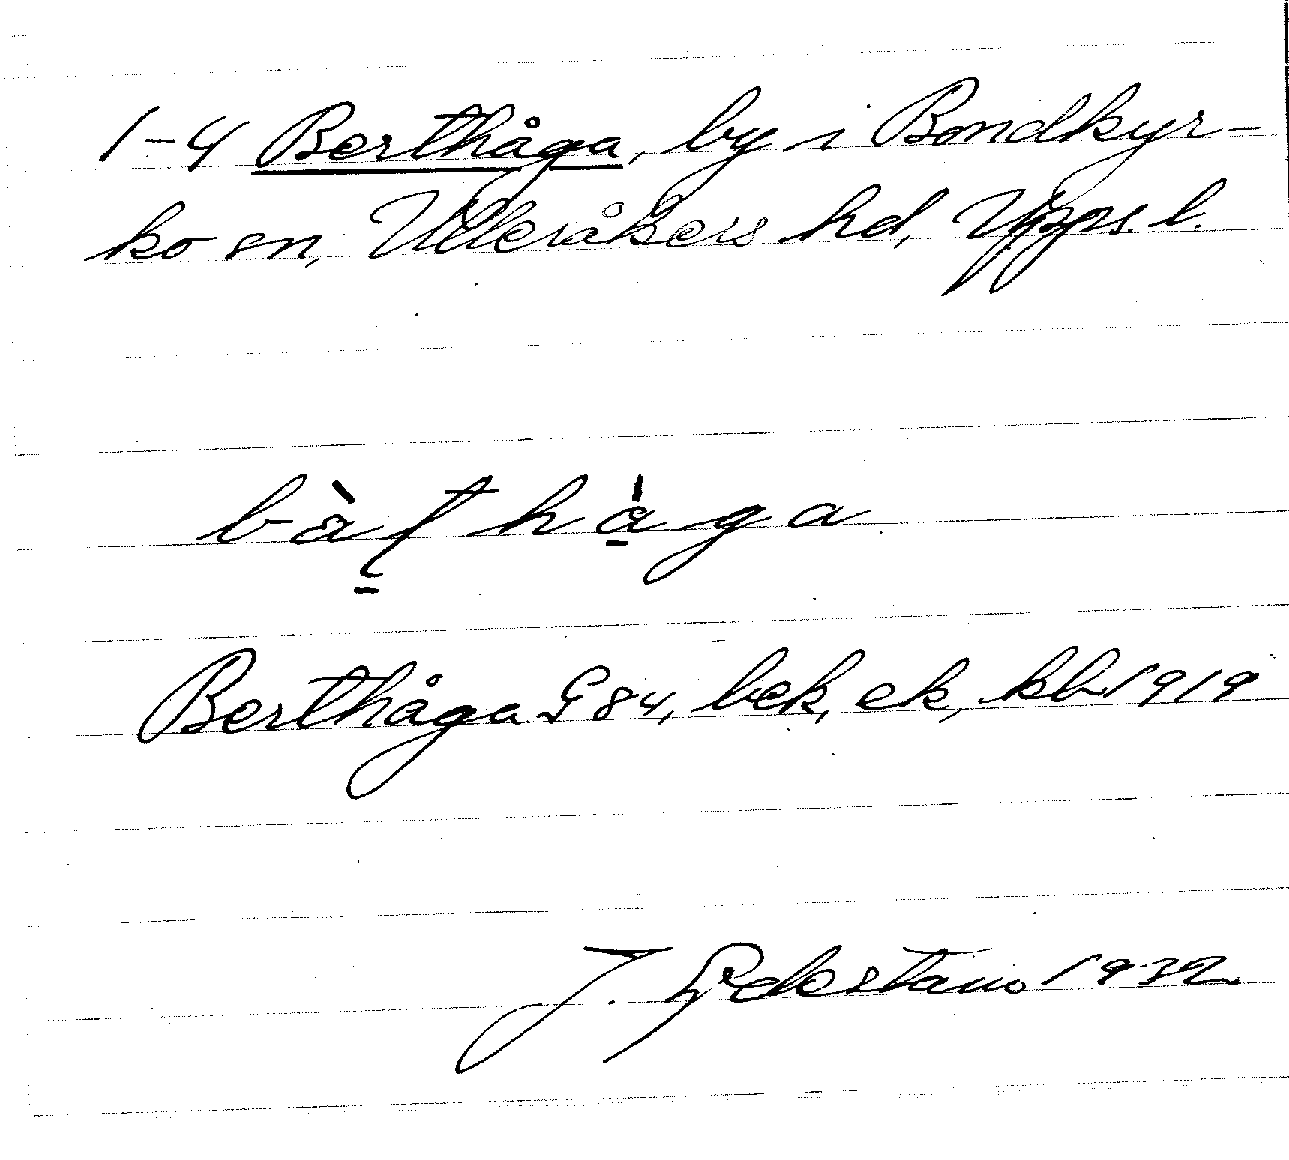 1–4 Berthåga, by i Bondkyr-
ko sn, Ulleråkers hd, Upps. l.
bàʈhága
Berthåga G 84, bek, ek, kb 1919
J. 1932